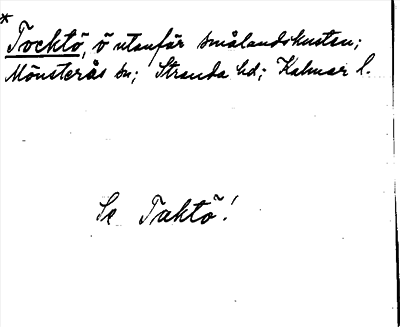 *
Tocktö, ö utanför smålandskusten;
Mönsterås sn; Stranda hd; Kalmar l.
Se Taktö!